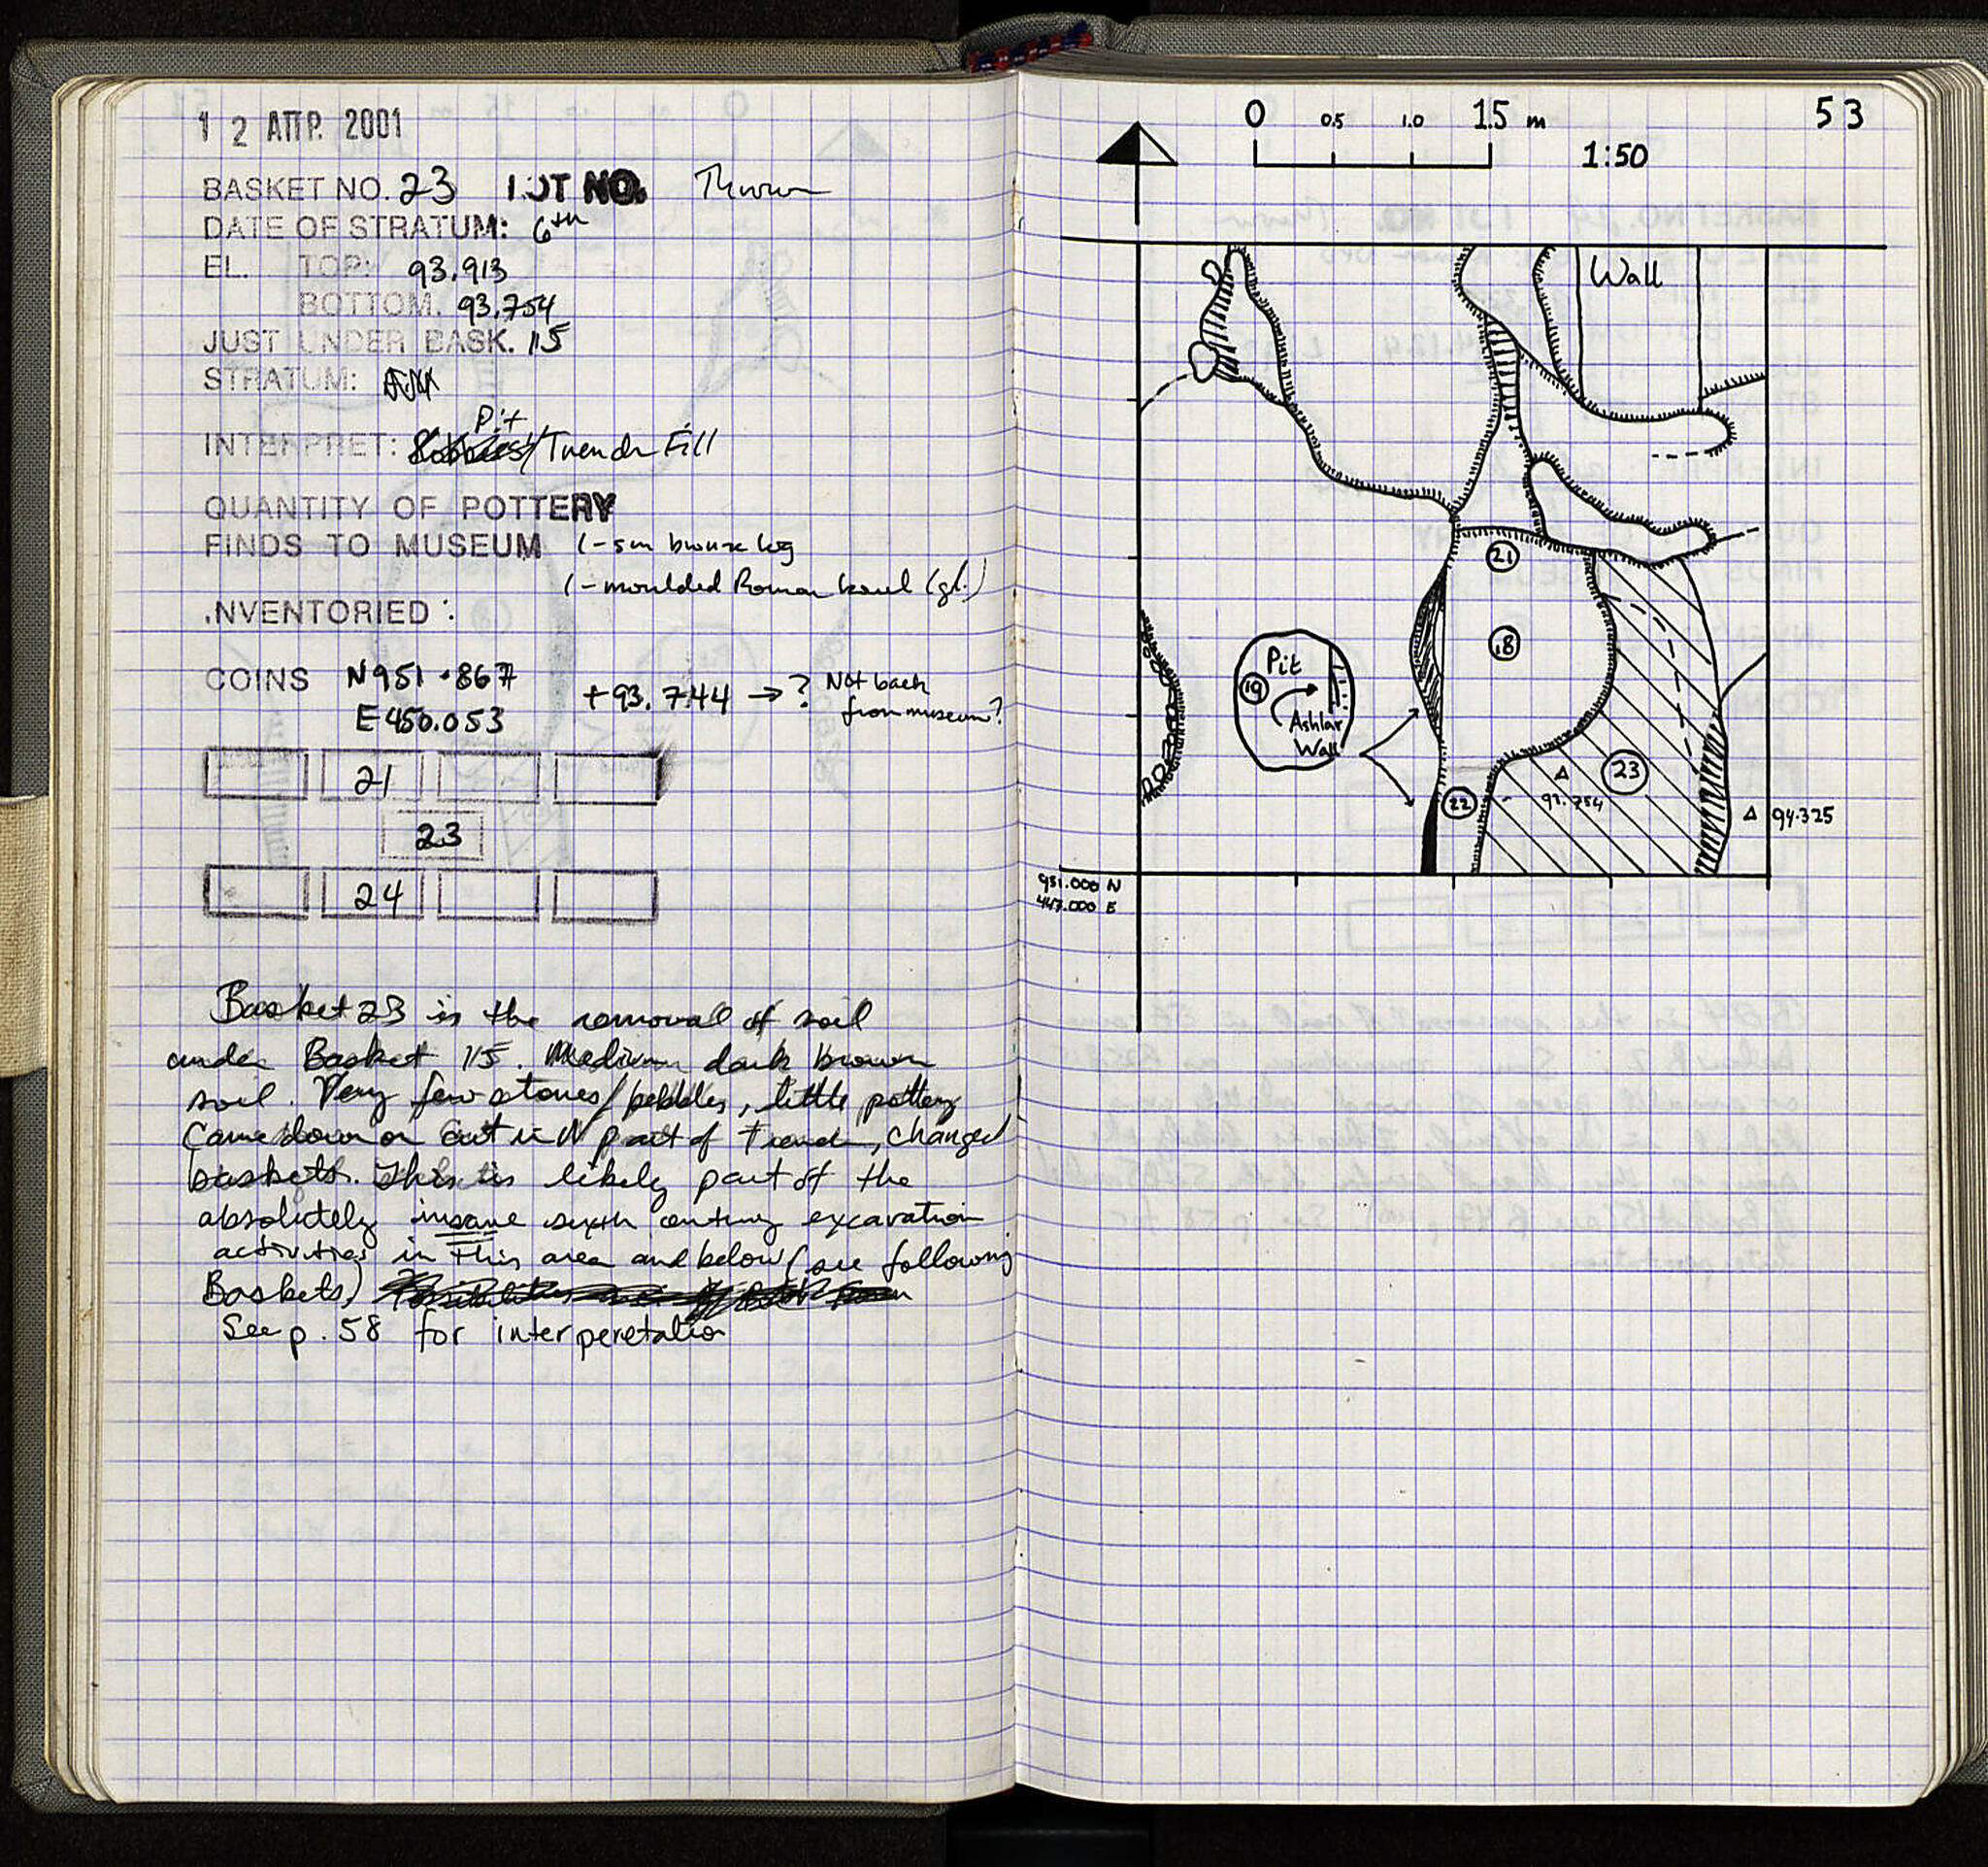 1 2 ΑΠΡ. 2001
BASKET NO. 23 LOT NO. Thrown
DATE OF STRATUM: 6th
EL. TOP: 93.913
BOTTOM. 93.754
JUST UNDER BASK. 15
STRATUM:
Pit
INTERPRET: /Trench Fill
QUANTITY OF POTTERY
FINDS TO MUSEUM 1 - sm bronze leg
1 - moulded Roman bowl (gl.)
.NVENTORIED :
COINS N951.867
E450.053
+93.744 → ? Not back
from museum?
21
23
24
Basket 23 is the removal of soil
under Basket 15. Medium dark brown
soil. Very few stones/pebbles, little pottery
Came down on cut in N part of trench, changed
baskets. This is likely part of the
absolutely insane sixth century excavation
activities in this area and below (see following
Baskets)
See p. 58 for interperetation
53
0 0.5 1.0 1.5 m
1:50
Wall
21
18
Pit
19
Ashlar
Wall
22
23
93.754
94.325
951.000 N
447.000 E